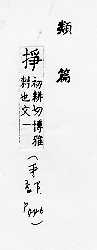 類篇
掙初耕切博雅
刺也文一